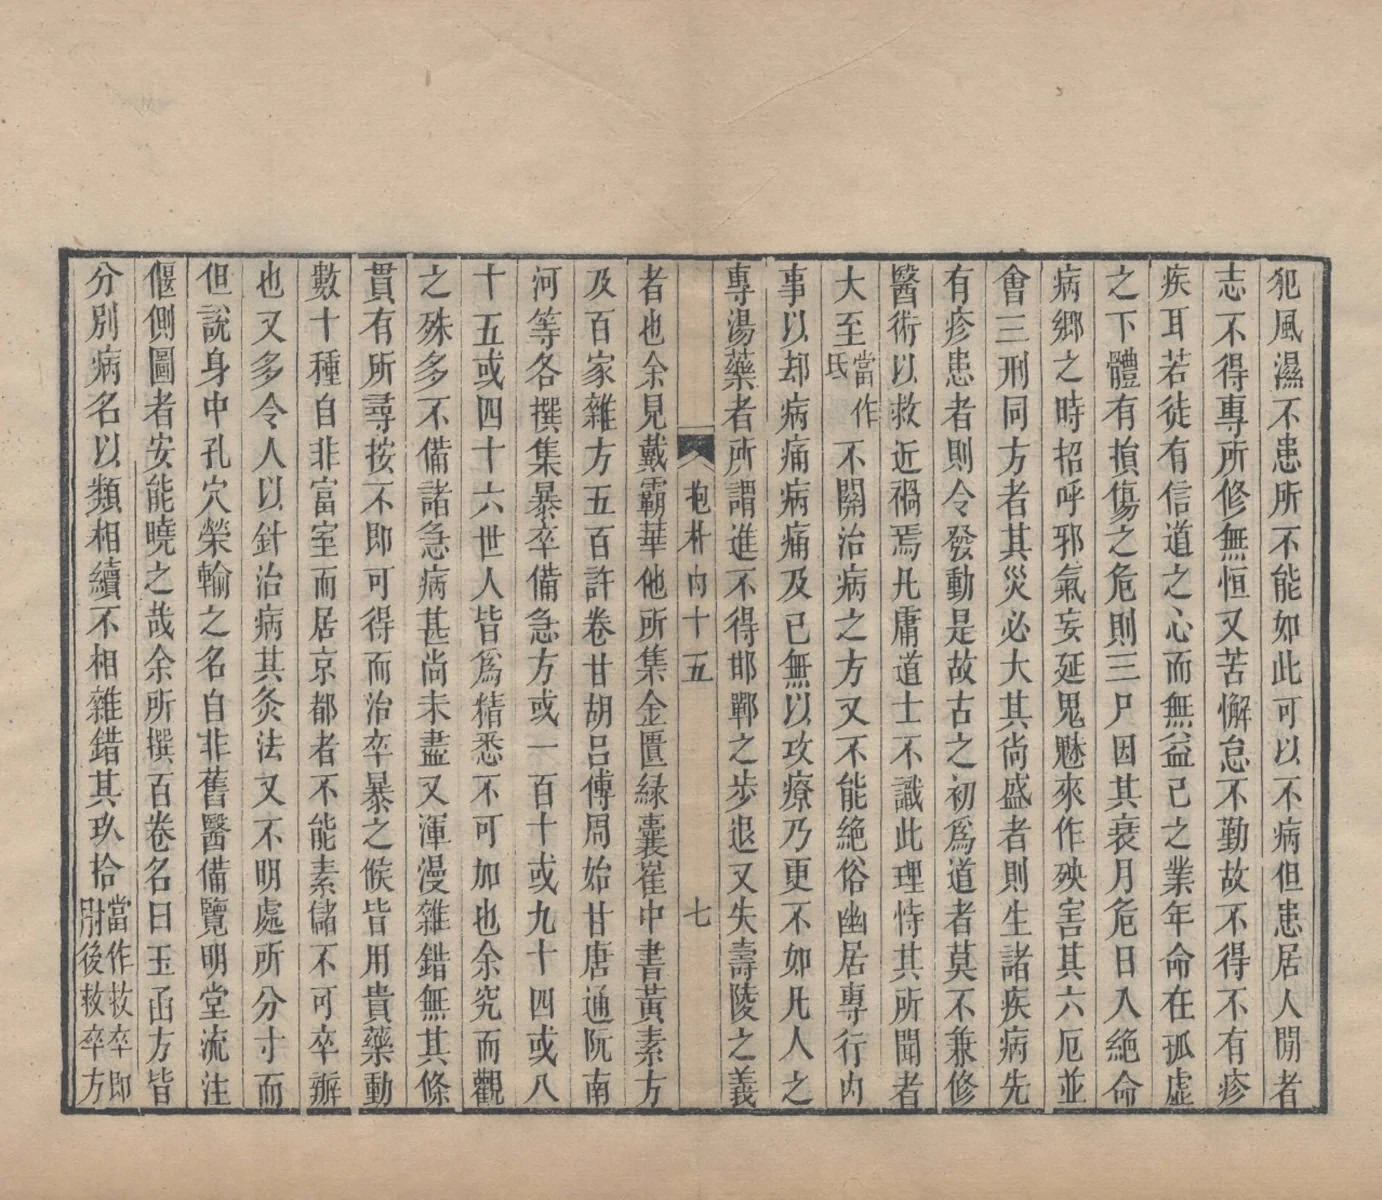 犯風濕不患所不能如此可以不病但患居人閒者
志不得專所修無恒又苦懈怠不勤故不得不有疹
疾耳若徒有信道之心而無益己之業年命在孤虛
之下體有損傷之危則三尸因其衰月危日入絶命
病鄉之時招呼邪氣妄延鬼魅來作殃害其六厄並
會三刑同方者其災必大其尚盛者則生諸疾病先
有疹患者則令發動是故古之初爲道者莫不兼修
醫術以救近禍焉凡庸道士不識此理恃其所聞者
大至當作氐不關治病之方又不能絶俗幽居專行內
事以却病痛病痛及已無以攻療乃更不如凡人之
專湯藥者所謂進不得邯鄲之步退又失壽陵之義
抱朴內十五 七
者也余見戴霸華他所集金匱緑囊崔中書黃素方
及百家雜方五百許卷甘胡呂傅周始甘唐通阮南
河等各撰集暴卒備急方或一百十或九十四或八
十五或四十六世人皆爲精悉不可加也余究而觀
之殊多不備諸急病甚尚未盡又渾漫雜錯無其條
貫有所尋按不即可得而治卒暴之候皆用貴藥動
數十種自非富室而居京都者不能素儲不可卒辦
也又多令人以針治病其灸法又不明處所分寸而
但說身中孔穴榮輸之名自非舊醫備覽明堂流注
偃側圖者安能曉之哉余所撰百卷名曰玉函方皆
分別病名以類相續不相雜錯其玖拾當作救卒即肘後救卒方